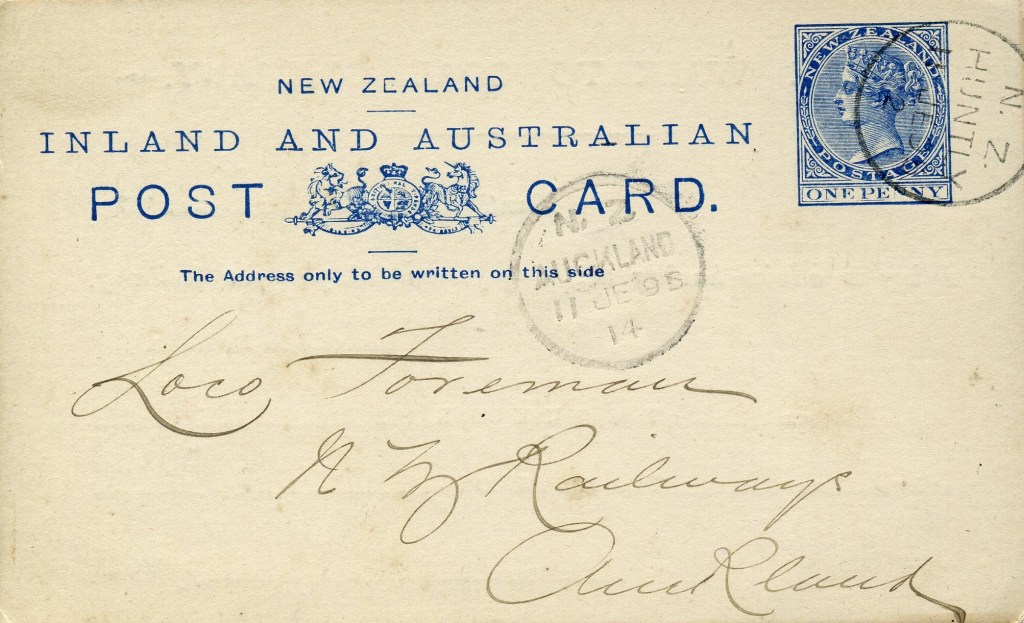 NEW ZEALAND
INLAND AND AUSTRALIAN
POST CARD.
The Address only to be written on this side
NEW·ZEALAND
POSTAGE
ONE PENNY
N.Z.
HUNTLY
N.Z
AUCKLAND
17 JE 95
14
Loco Foreman
N Z Railways
Auckland